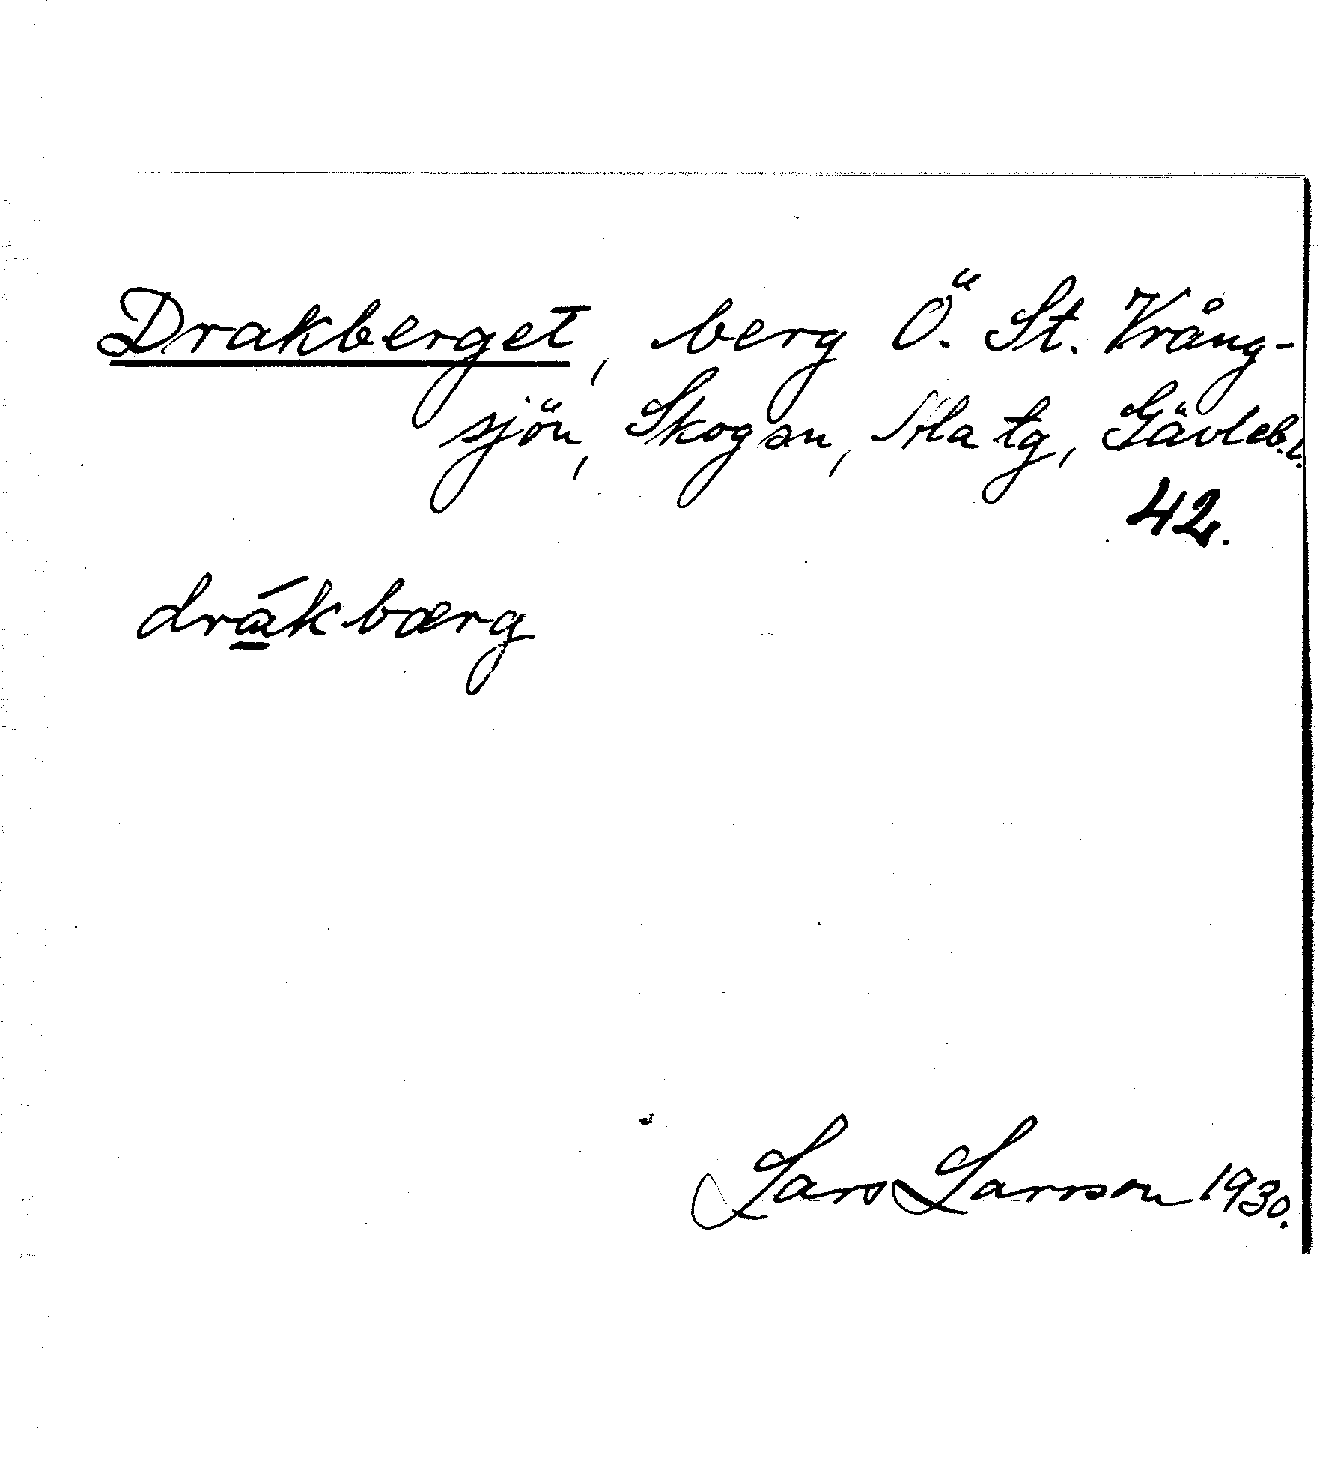 Drakberget, berg Ö. St. Vrång-
sjön, Skogen, Ala tg, Gävleb.l.
42.
drákbærg
Lars Larsson 1930.